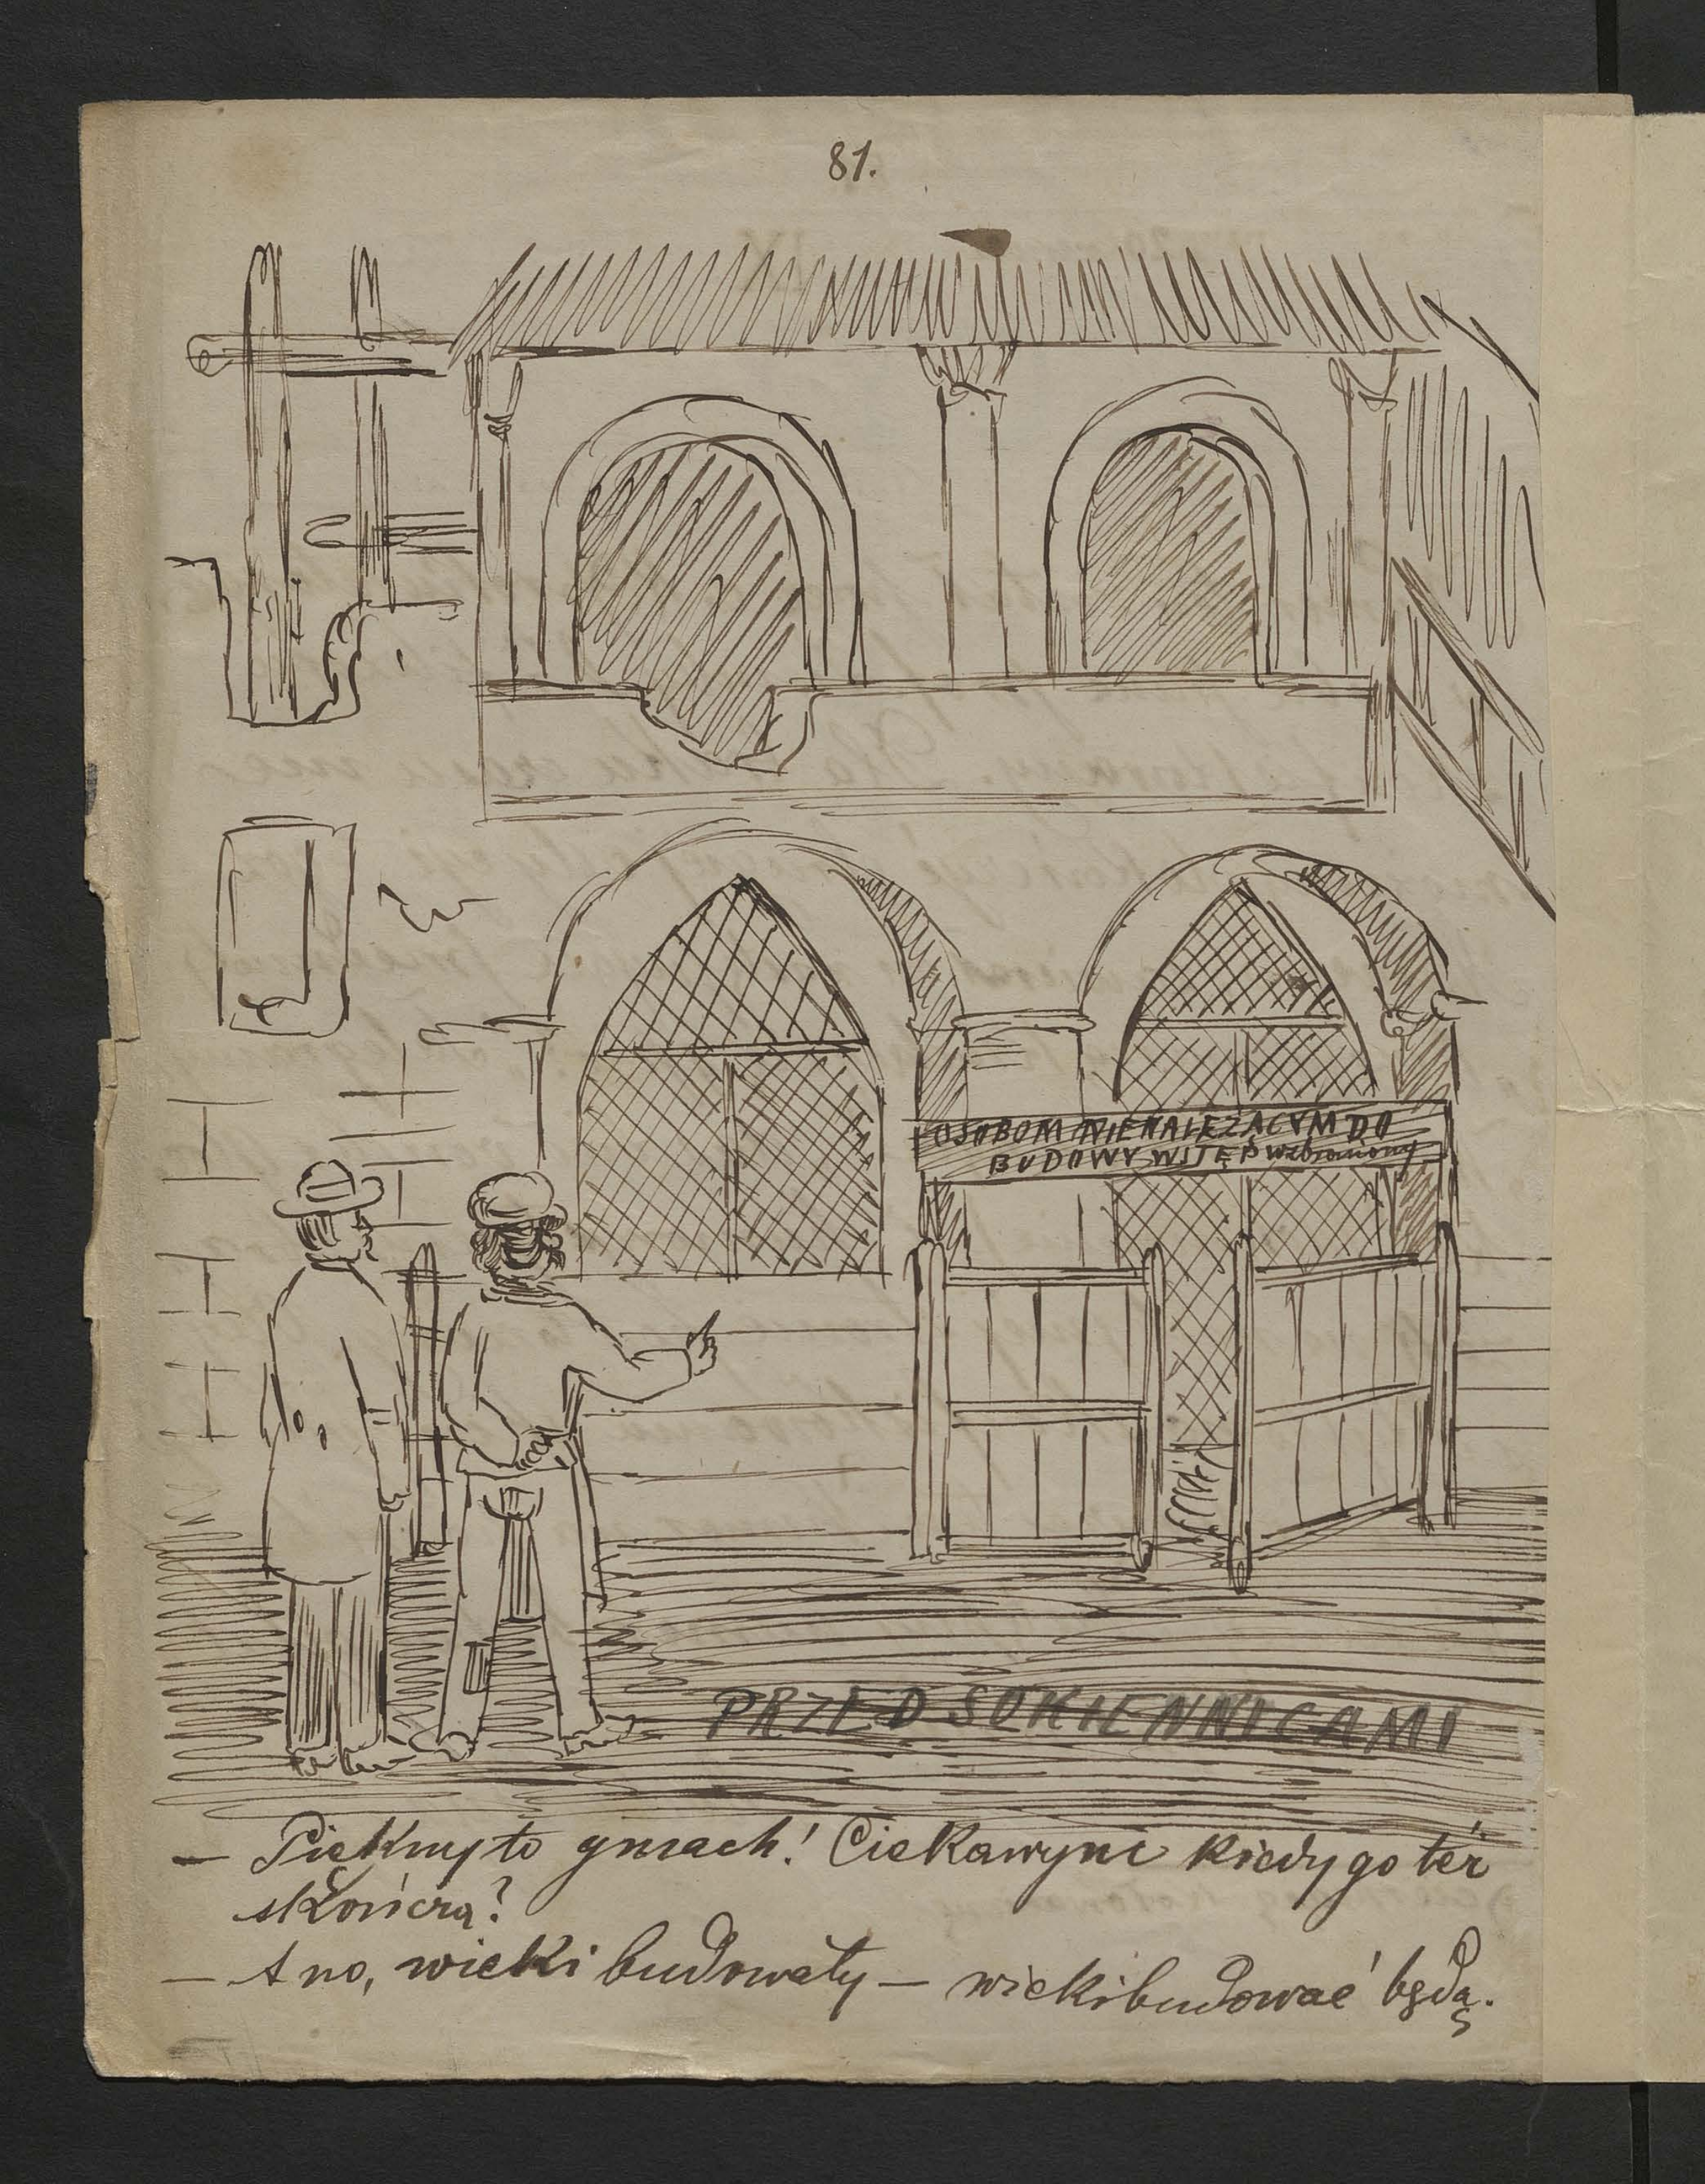 81.
OSOBOM NIENALEŻĄCYM DO
BUDOWY WSTĘP wzbroniony
PRZED SUKIENNICAMI
— Piękny to gmach! Ciekawym kiedy go też
skończą?
— A no, wieki budowały — wieki budować będą.